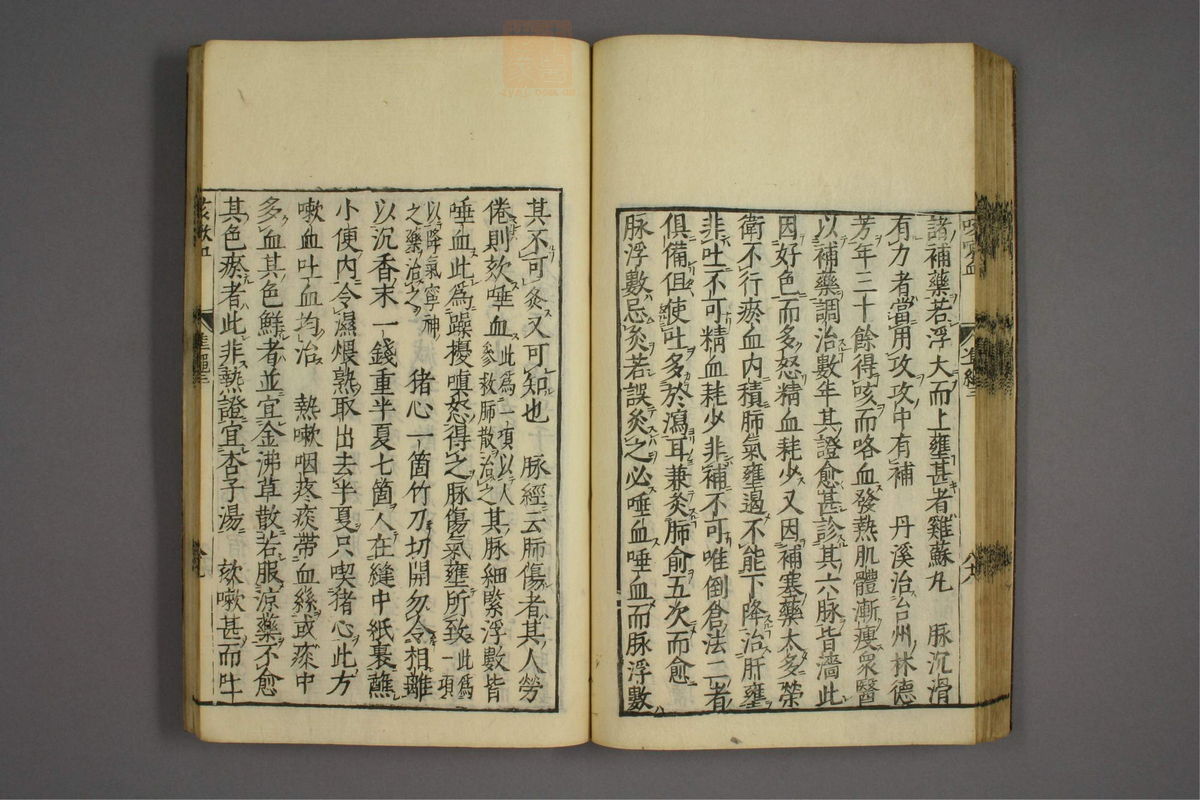 諸補藥若浮大而上壅甚者雞蘇丸　脉沉滑
有力者當用攻攻中有補　丹溪治台州林德
芳年三十餘得咳而咯血發熱肌體漸瘦衆醫
以補藥調治數年其證愈甚診其六脉皆濇此
因好色而多怒精血耗少又因補塞藥太多榮
衛不行瘀血内積肺氣壅遏不能下降治肝壅
非吐不可精血耗少非補不可唯倒倉法二者
俱備但使吐多於瀉耳兼灸肺俞五次而愈
脉浮數忌灸若誤灸之必唾血唾血而脉浮數
其不可灸又可知也　脉經云肺傷者其人勞
倦則欬唾血此爲一項以人參救肺散治之其脉細緊浮數皆
唾血此爲躁擾嗔怒得之脉傷氣壅所致此爲一項
以降氣寧神之藥治之　猪心一箇竹刀切開勿令相離
以沉香末一錢重半夏七箇入在縫中紙裹蘸
小便内令濕煨熟取出去半夏只喫猪心此方
嗽血吐血均治　熱嗽咽疼痰帶血絲或痰中
多血其色鮮者並宜金沸草散若服涼藥不愈
其色瘀者此非熱證宜杏子湯　欬嗽甚而吐